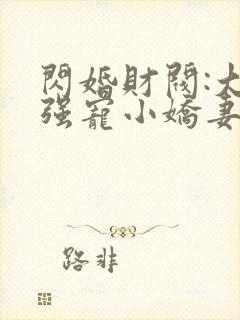 閃婚財閥:大
强寵小嬌妻
路非